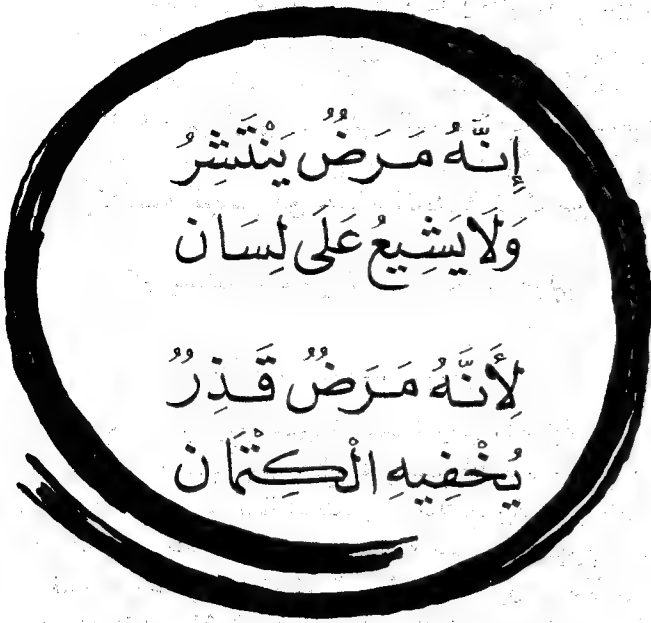 إِنَّهُ مَرَضٌ يَنْتَشِرُ
وَلَا يَشِيعُ عَلَى لِسَان
لِأَنَّهُ مَرَضٌ قَذِرٌ
يُخْفِيهِ الْكِتْمَان